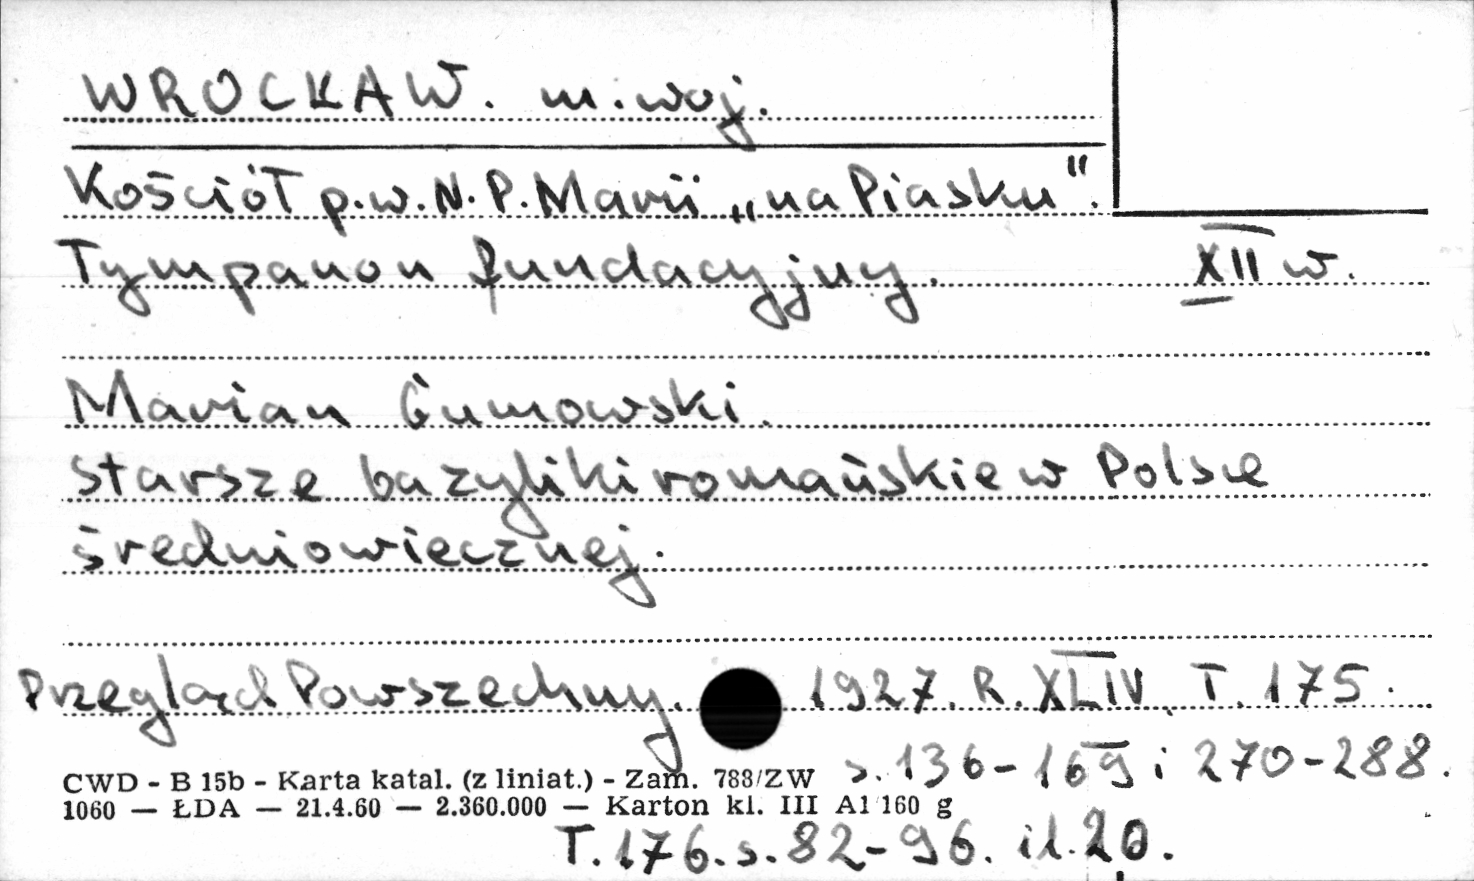 WROCŁAW. m.woj.
Kościół p.w. N.P. Marii „na Piasku".
Tympanon fundacyjny. XII w.
Marian Gumowski.
starsze bazyliki romańskie w Polsce
średniowiecznej.
Przegląd Powszechny. 1927. R. XLIV. T. 175.
s. 136-169 i 270-288.
CWD - B 15b - Karta katal. (z liniat.) - Zam. 788/ZW
1060 — ŁDA — 21.4.60 — 2.360.000 — Karton kl. III A1 160 g
T. 176. s. 82-96. il. 20.